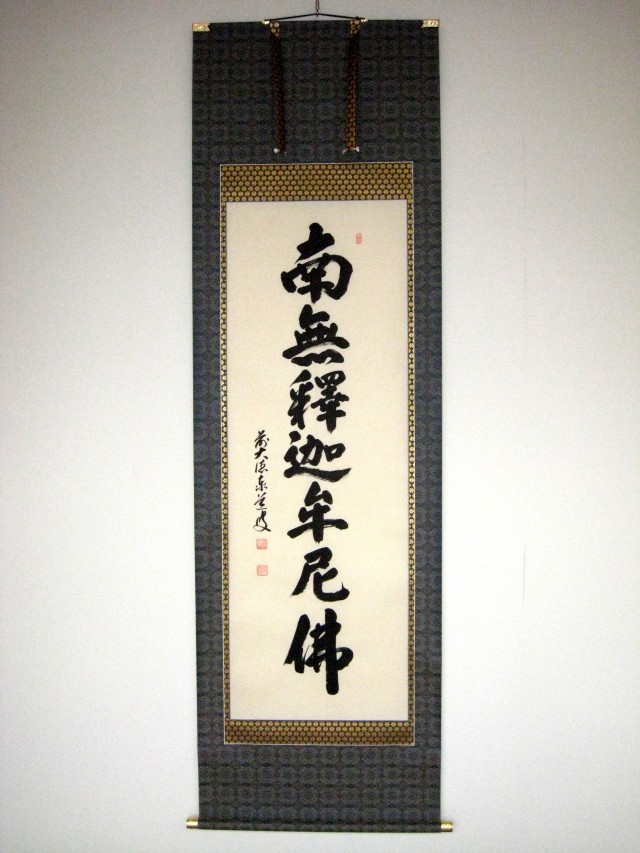 南無釋迦牟尼佛
前大徳泉道